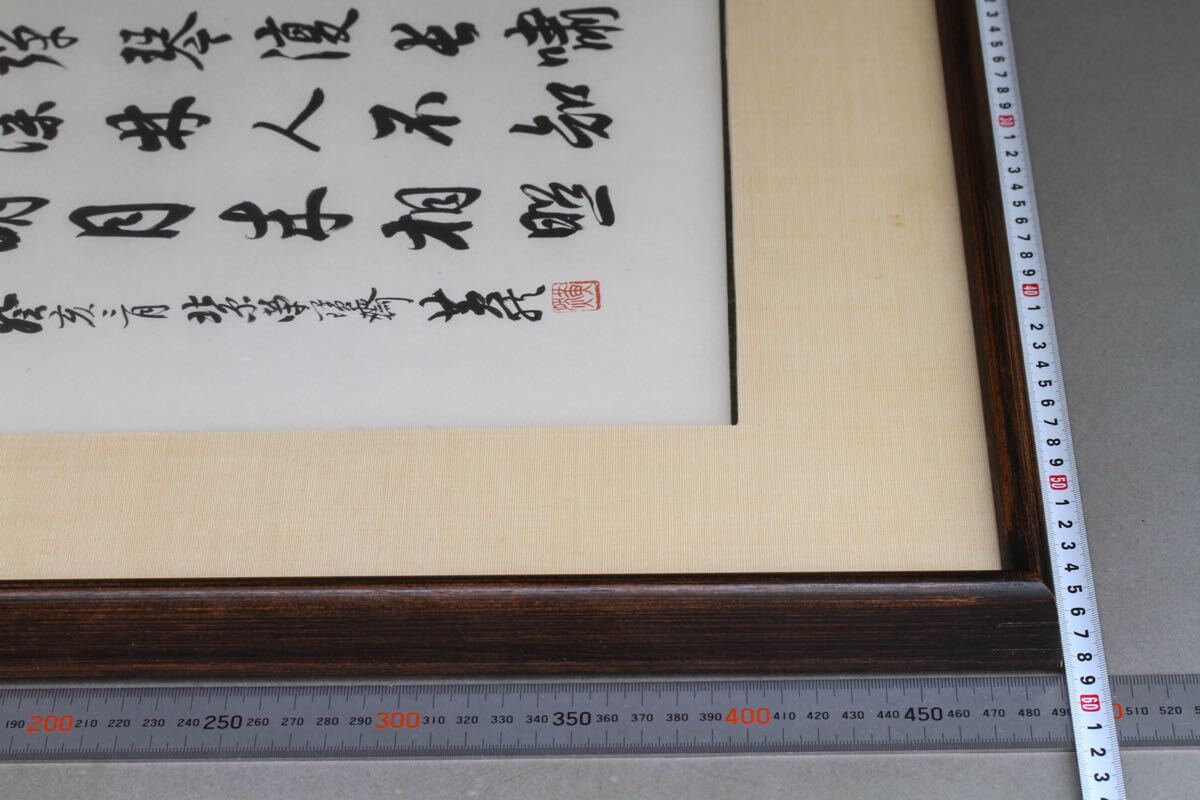 彈琴復長嘯
深林人不知
明月来相照
癸亥三月北京
190 200 210 220 230 240 250 260 270 280 290 300 310 320 330 340 350 360 370 380 390 400 410 420 430 440 450 460 470 480 510 520
2 3 4 5 6 7 8 9 30 1 2 3 4 5 6 7 8 9 40 1 2 3 4 5 6 7 8 9 50 1 2 3 4 5 6 7 8 9 60 1 2 3